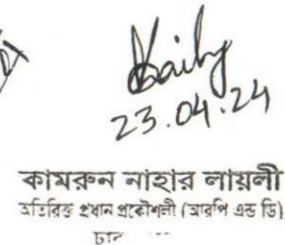 23.04.24
কামরুন নাহার লায়লী
অতিরিক্ত প্রধান প্রকৌশলী (আরপি এন্ড ডি)